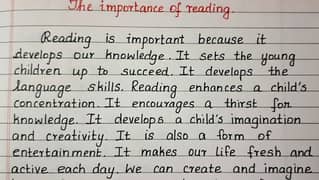 The importance of reading.
Reading is important because it
develops our knowledge. It sets the young
children up to succeed. It develops the
language skills. Reading enhances a child's
concentration. It encourages a thirst for
knowledge. It develops a child's imagination
and creativity. It is also a form of
entertainment. It makes our life fresh and
active each day. We can create and imagine